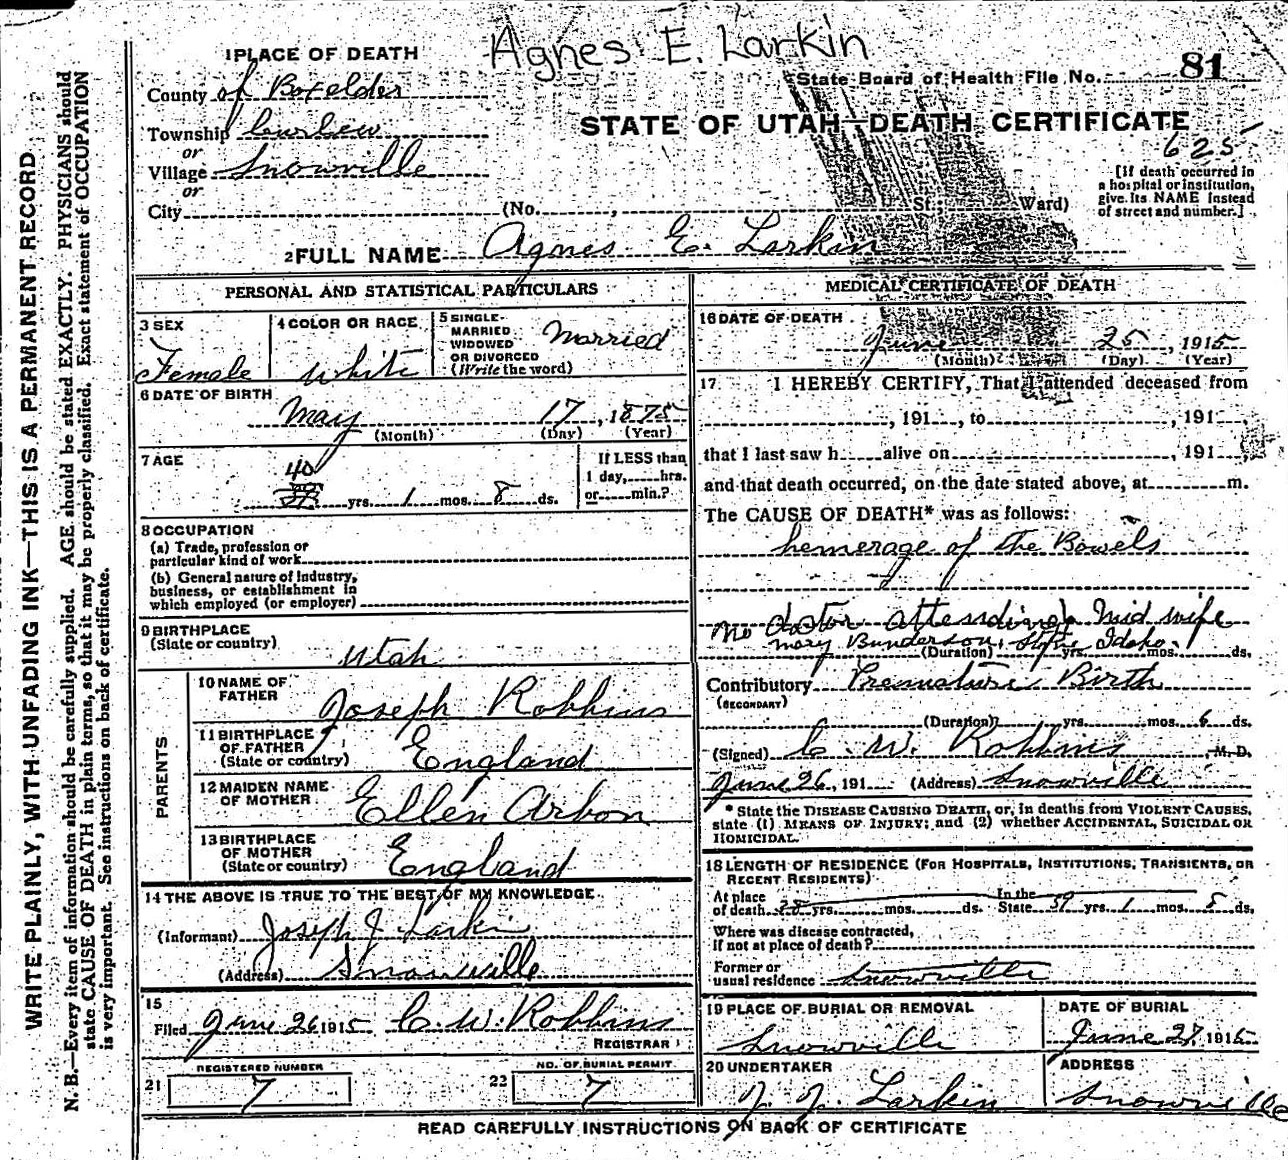 Agnes E. Larkin
1 PLACE OF DEATH
State Board of Health File No. 81
County of Boxelder
STATE OF UTAH—DEATH CERTIFICATE
Township Curlew
625
or
Village Snowville
or
City (No. , St; Ward)
[If death occurred in
a hospital or institution,
give its NAME instead
of street and number.]
2 FULL NAME Agnes E. Larkin
PERSONAL AND STATISTICAL PARTICULARS
3 SEX
Female
4 COLOR OR RACE
White
5 SINGLE-
MARRIED
WIDOWED
OR DIVORCED
(Write the word)
Married
6 DATE OF BIRTH
May 17, 1875
(Month) (Day) (Year)
7 AGE
40
yrs. 1 mos. 8 ds.
If LESS than
1 day, hrs.
or min.?
8 OCCUPATION
(a) Trade, profession or
particular kind of work
(b) General nature of Industry,
business, or establishment in
which employed (or employer)
9 BIRTHPLACE
(State or country)
Utah
PARENTS
10 NAME OF
FATHER
Joseph Robbins
11 BIRTHPLACE
OF FATHER
(State or country)
England
12 MAIDEN NAME
OF MOTHER
Ellen Arbon
13 BIRTHPLACE
OF MOTHER
(State or country)
England
14 THE ABOVE IS TRUE TO THE BEST OF MY KNOWLEDGE
(Informant) Joseph J. Larkin
(Address) Snowville
15
Filed June 26 1915 C. W. Robbins
REGISTRAR
REGISTERED NUMBER
21 7
NO. OF BURIAL PERMIT
22 7
MEDICAL CERTIFICATE OF DEATH
16 DATE OF DEATH
June 25, 1915
(Month) (Day) (Year)
17 I HEREBY CERTIFY, That I attended deceased from
, 191 , to , 191
that I last saw h alive on , 191
and that death occurred, on the date stated above, at m.
The CAUSE OF DEATH* was as follows:
hemerage of the Bowels
no doctor attending Midwife
mary Bunderson, Idaho
(Duration) yrs. mos. ds.
Contributory Premature Birth
(SECONDARY)
(Duration) yrs. mos. 6 ds.
(Signed) C. W. Robbins M. D.
June 26, 191 (Address) Snowville
* State the DISEASE CAUSING DEATH, or, in deaths from VIOLENT CAUSES,
state (1) MEANS OF INJURY; and (2) whether ACCIDENTAL, SUICIDAL OR
HOMICIDAL.
18 LENGTH OF RESIDENCE (FOR HOSPITALS, INSTITUTIONS, TRANSIENTS, OR
RECENT RESIDENTS)
At place In the
of death yrs. mos. ds. State 39 yrs. 1 mos. 8 ds.
Where was disease contracted,
If not at place of death?
Former or
usual residence Snowville
19 PLACE OF BURIAL OR REMOVAL
Snowville
DATE OF BURIAL
June 27, 1915
20 UNDERTAKER
J. J. Larkin
ADDRESS
Snowville
READ CAREFULLY INSTRUCTIONS ON BACK OF CERTIFICATE
WRITE PLAINLY, WITH UNFADING INK—THIS IS A PERMANENT RECORD
N. B.—Every item of information should be carefully supplied. AGE should be stated EXACTLY. PHYSICIANS should
state CAUSE OF DEATH in plain terms, so that it may be properly classified. Exact statement of OCCUPATION
is very important. See instructions on back of certificate.